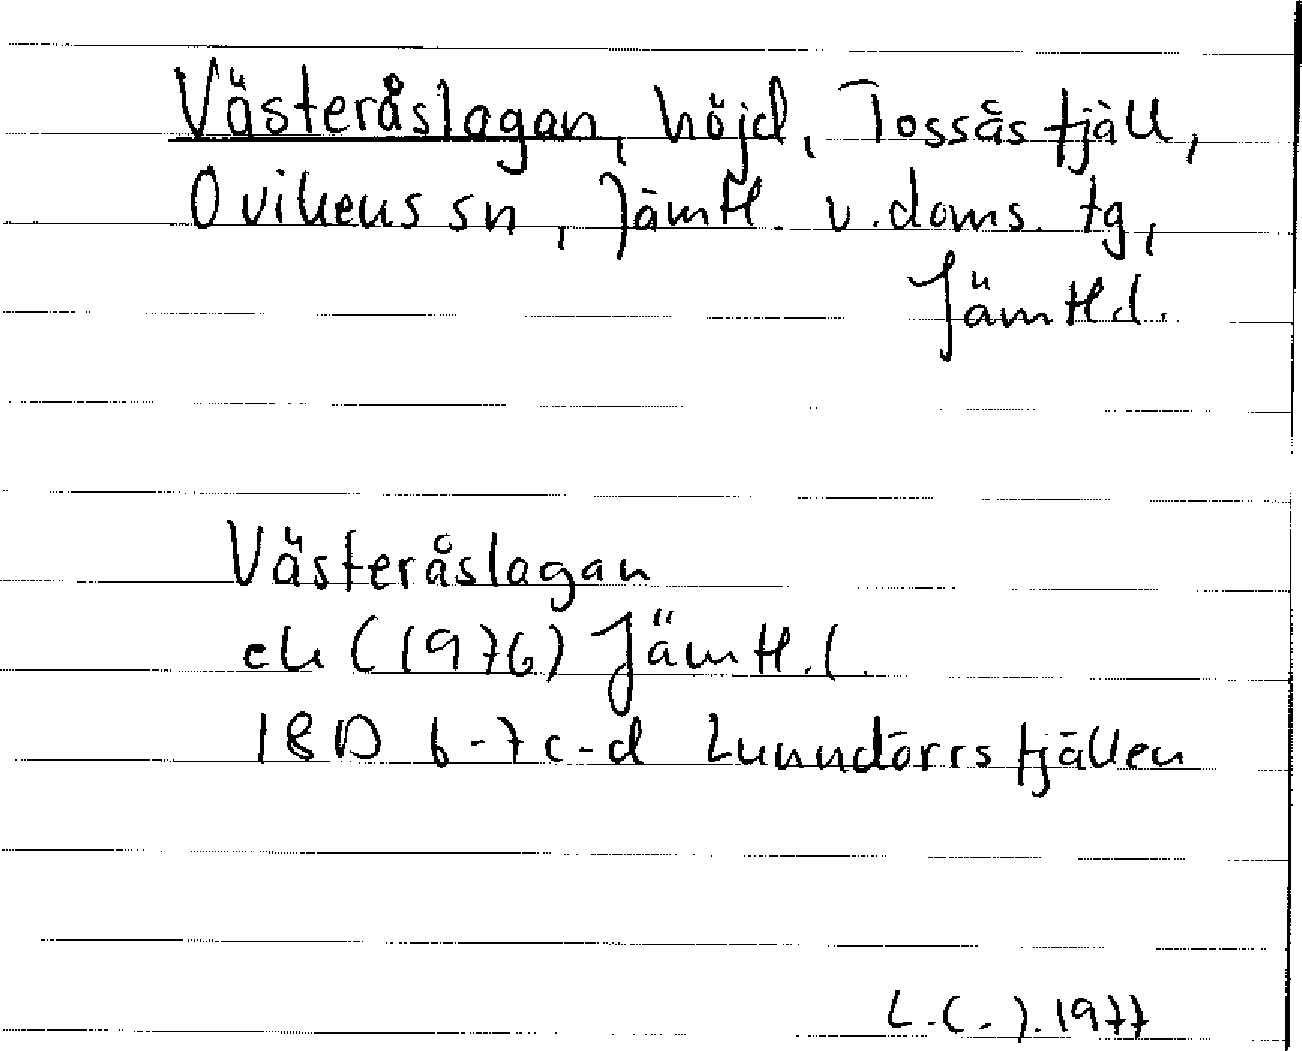 Västeråslagan, höjd, Tossåsfjäll,
Ovikens sn, Jämtl. v. doms. tg,
Jämtl.l.
Västeråslagan
ek (1976) Jämtl.l.
18D 6-7c-d Lunndörrsfjällen
1977